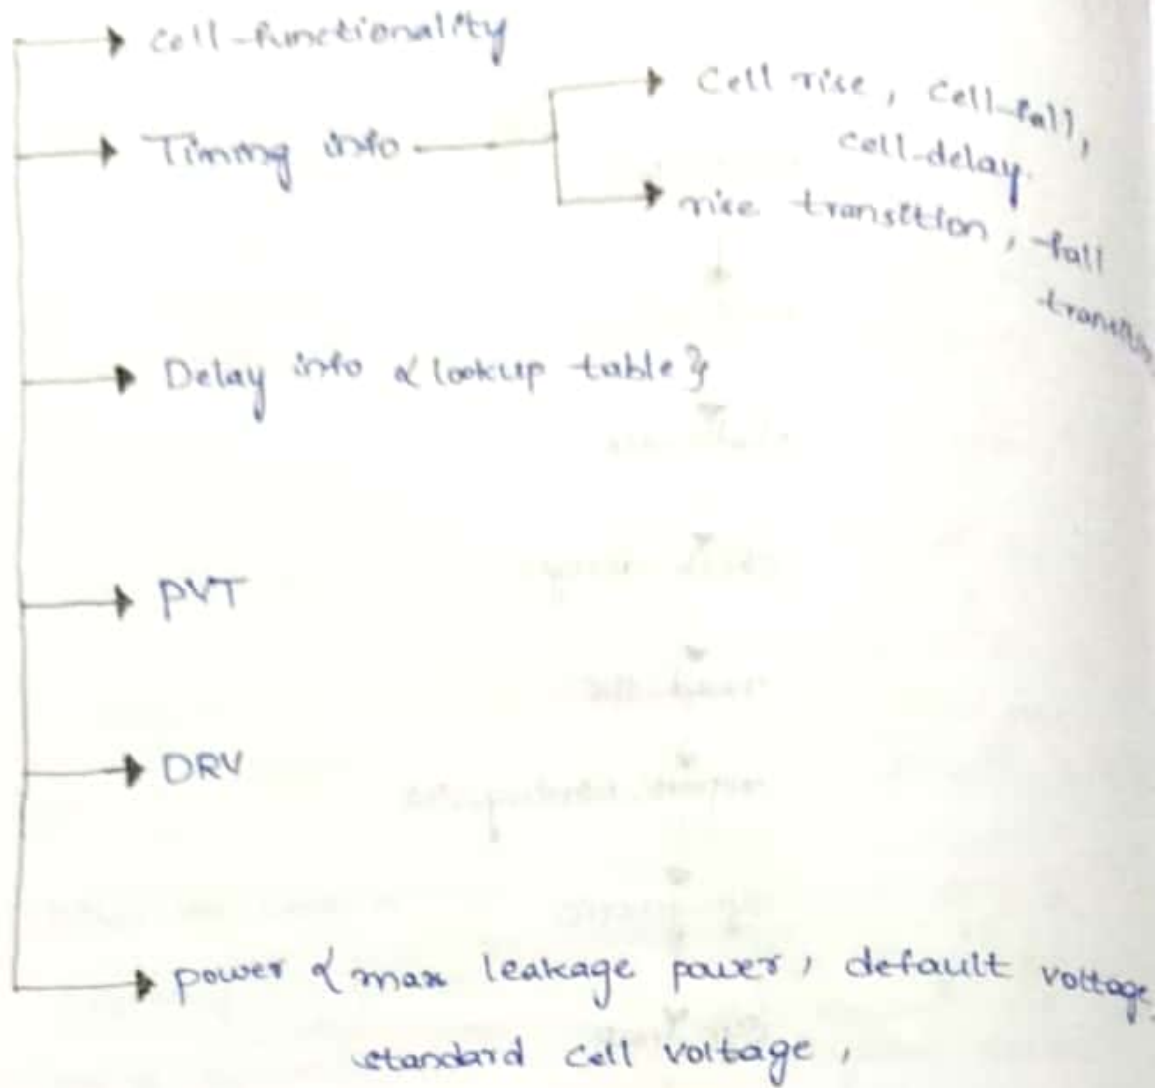 cell-functionality
Timing info
Cell rise, cell-fall,
cell-delay.
rise transition, fall
Delay info {lookup table}
PVT
DRV
power {max leakage power, default voltage,
standard cell voltage,